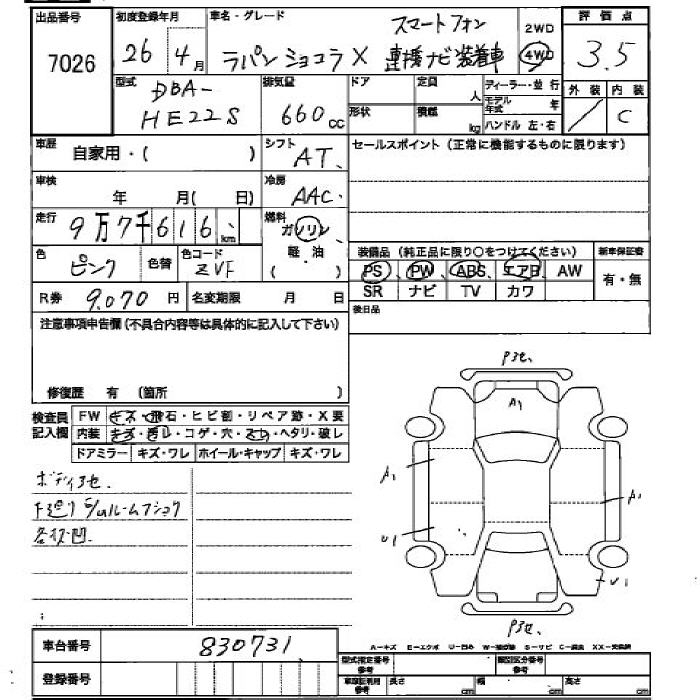 出品番号
7026
初度登録年月
26年 4月
車名・グレード
スマートフォン
ラパンショコラX 連携ナビ装着車
2WD
4WD
評価点
3.5
外装 内装
／ C
型式
DBA-
HE22S
排気量
660cc
ドア
形状
定員
人
積載
kg
ディーラー・並行
モデル年式 年
ハンドル 左・右
車歴
自家用・( )
シフト
AT
セールスポイント(正常に機能するものに限ります)
車検
年 月( 日)
冷房
AAC
走行
9万7千616km
燃料
ガソリン
軽・油
( )
色
ピンク
色替
色コード
ZVF
装備品(純正品に限り○をつけてください)
新車保証書
PS PW ABS エアB AW
SR ナビ TV カワ
有・無
R券 9.070円
名変期限 月 日
後日品
注意事項申告欄(不具合内容等は具体的に記入して下さい)
修復歴 有 (箇所 )
検査員記入欄
FW キズ・飛石・ヒビ割・リペア跡・X要
内装 キズ・汚レ・コゲ・穴・スレ・ヘタリ・破レ
ドアミラー キズ・ワレ ホイール・キャップ キズ・ワレ
ボディ3セ.
下廻り
各疵凹.
P3セ.
A1
A1
A1
U1
U1
P3セ.
車台番号
830731
登録番号
A－キズ E－エクボ U－凹み W－補修跡 S－サビ C－腐食 XX－交換済
型式指定番号
参考
類別区分番号
参考
車検証利用
参考
長さ cm
幅 cm
高さ cm